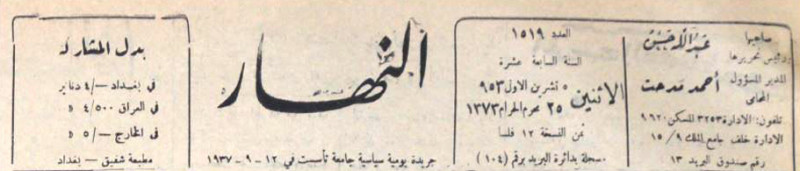 صاحبها
ورئيس تحريرها
عبد الله حسين
المدير المسؤول
المحامي
أحمد مدحت
تلفون: الادارة ٣٢٥٣ المسكن ٩٦٢٠
الادارة خلف جامع الملك ١٥/٩
رقم صندوق البريد ١٣
العدد ١٥١٩
السنة السابعة عشرة
الاثنين
٥ تشرين الاول ٩٥٣
٢٥ محرم الحرام ١٣٧٣
ثمن النسخة ١٢ فلسا
مسجلة بدائرة البريد برقم (١٠٤)
النهار
جريدة يومية سياسية جامعة تأسست في ١٢ - ٩ - ١٩٣٧
بدل المشاركة
في بغداد -/٤ دنانير
في العراق ٤/٥٠٠ »
في الخارج -/٥ »
مطبعة شفيق - بغداد